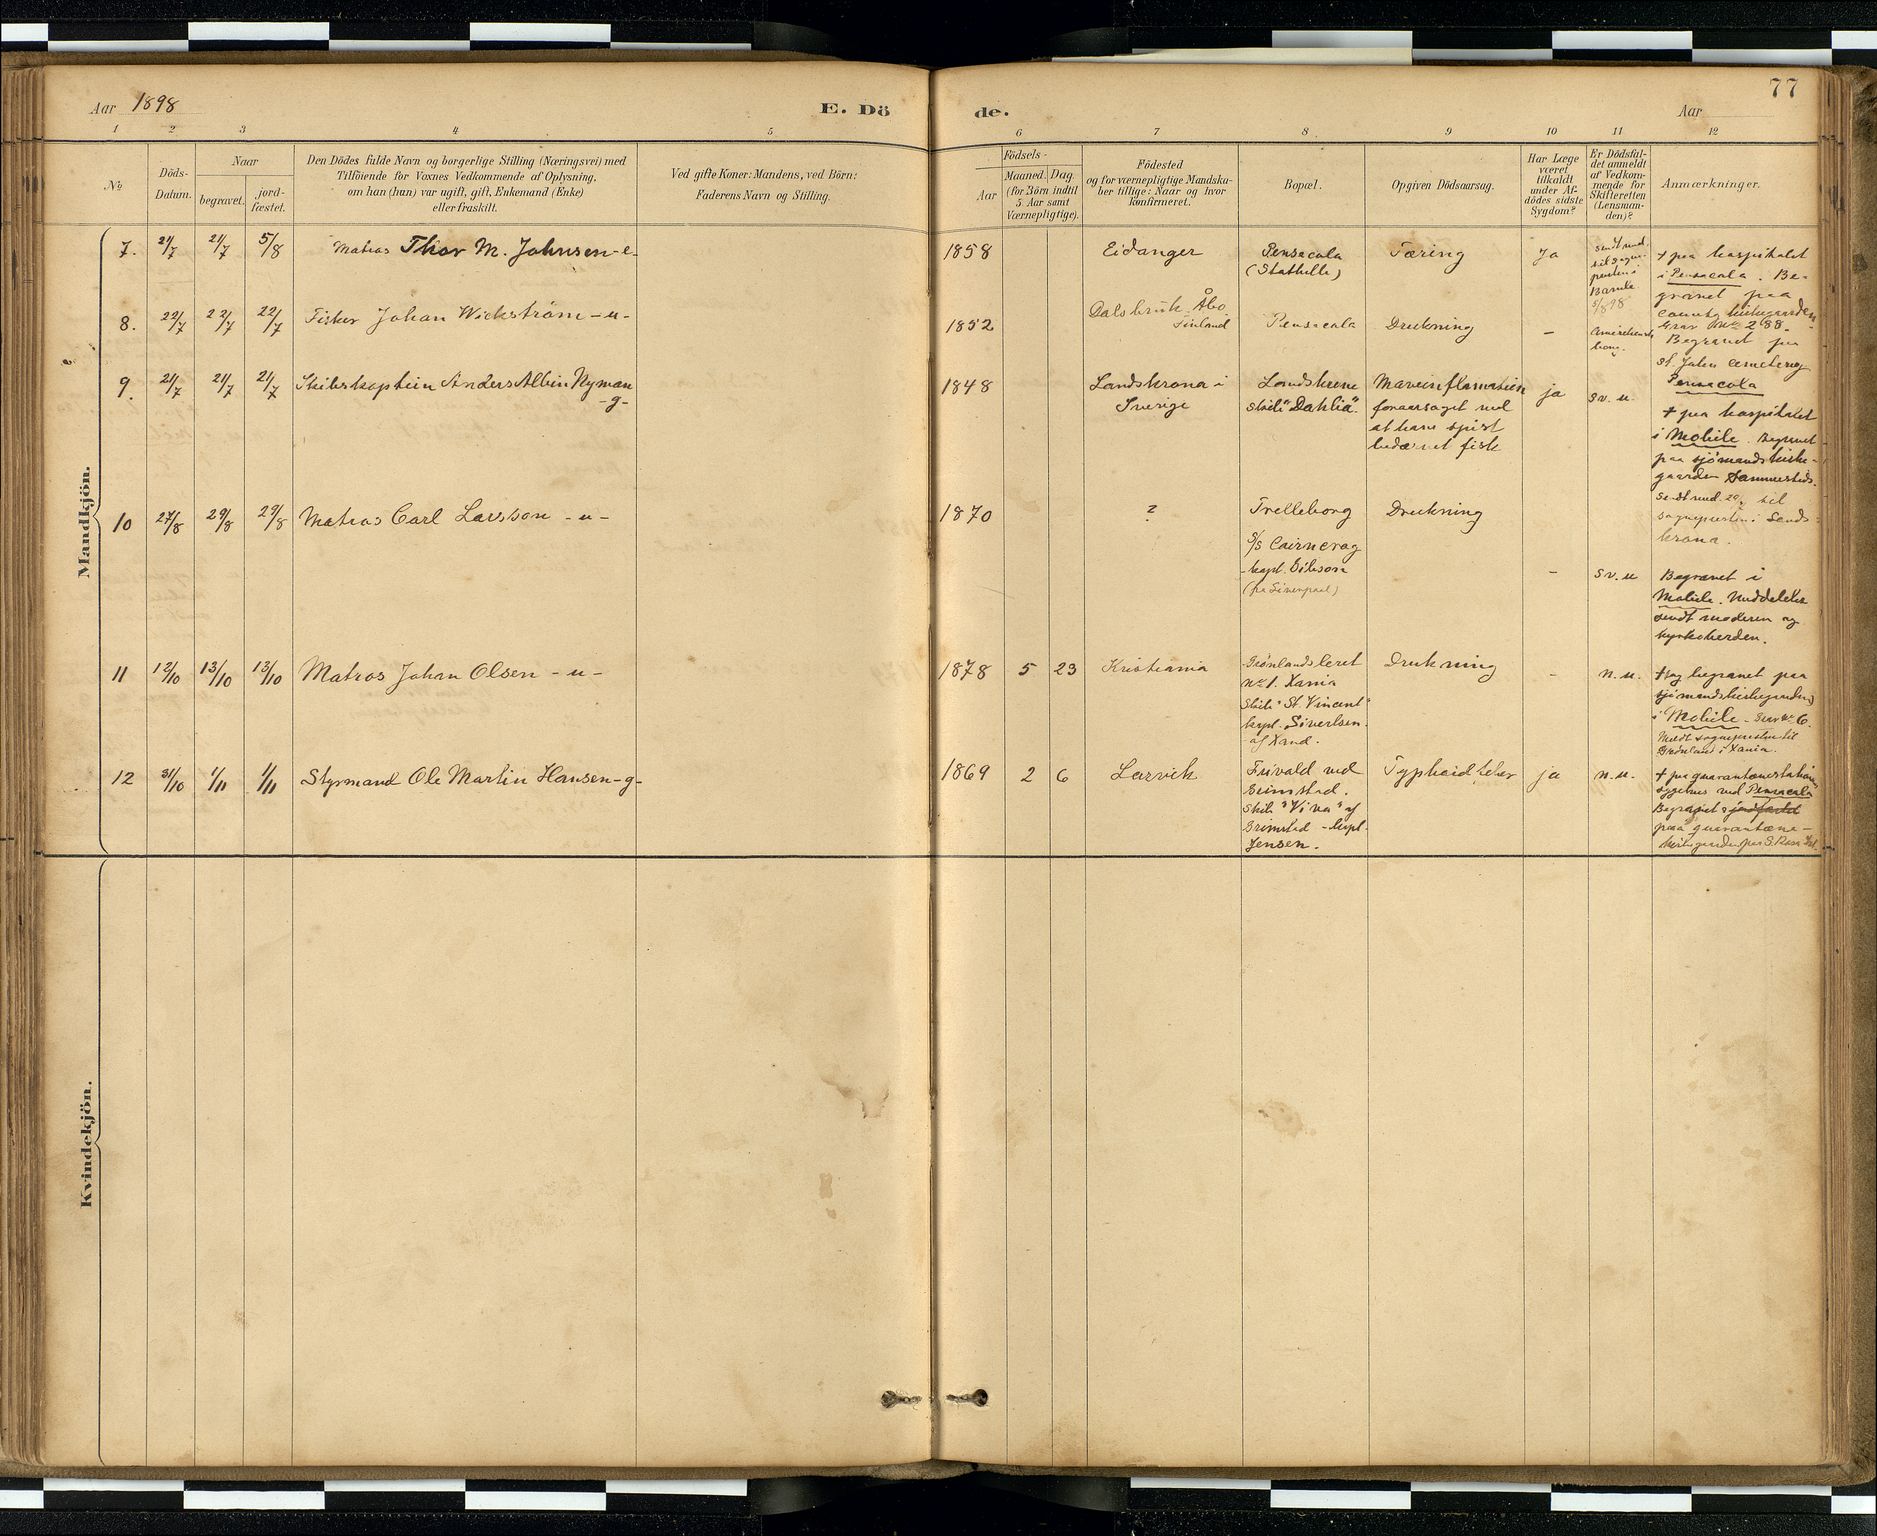 Aar 1898
E. Dö
de.
Aar
77
1 2 3 4 5 6 7 8 9 10 11 12
No
Döds-
Datum.
Naar
begravet.
jord-
fæstet.
Den Dödes fulde Navn og borgerlige Stilling (Næringsvei) med
Tilföiende for Voxnes Vedkommende af Oplysning,
om han (hun) var ugift, gift, Enkemand (Enke)
eller fraskilt.
Ved gifte Koner: Mandens, ved Börn:
Faderens Navn og Stilling.
Födsels-
Aar
Maaned. Dag.
(for Börn indtil
5. Aar samt
Værnepligtige).
Födested
og for værnepligtige Mandska-
ber tillige: Naar og hvor
konfirmeret.
Bopæl.
Opgiven Dödsaarsag.
Har Læge
været
tilkaldt
under Af-
dödes sidste
Sygdom?
Er Dödsfal-
det anmeldt
af Vedkom-
mende for
Skifteretten
(Lensman-
den)?
Anmærkninger.
Mandkjön.
7. 21/7 21/7 5/8 Matros Thor M. Johnsen -e-
1858
Eidanger
Pensacola
(Stathelle)
Tæring
Ja
sendt med.
til sogne-
presten i
Bamle
5/8 98
+ paa hospitalet
i Pensacola. Be-
gravet paa
County kirkegaarden
Grav No 288.
8. 22/7 22/7 22/7 Fisker Johan Wickström -u-
1852
Dalsbruk Åbo
Finland
Pensacola
Drukning
-
Begravet paa
St. John Cemetery
Pensacola
9. 21/7 21/7 21/7 Skibskaptein Anders Albin Nyman
-g-
1848
Landskrona i
Sverige
Landskrona
skib "Dahlia".
Maveinflamation
foraarsaget ved
at have spist
bedærvet fisk
ja
sv. u.
+ paa hospitalet
i Mobile. Begravet
paa sjömandskirke-
gaarden sammesteds.
sendt med. til
sognepresten i Lands-
krona.
10 27/8 29/8 29/8 Matros Carl Larsson -u-
1870
?
Trelleborg
S/S Cairncrag
kapt. Gibson
(fra Liverpool)
Drukning
-
sv. u
Begravet i
Mobile. Meddelelse
sendt moderen og
kyrkoherden.
11 12/10 13/10 13/10 Matros Johan Olsen -u-
1878 5 23
Kristiania
Grönlandsleret
No 1. Xania
Skib "St. Vincent"
kapt. Sivertsen
af Xand.
Drukning
-
n. u.
+ og begravet paa
sjömandskirkegaarden
i Mobile - Grav No 6.
Meldt sognepresten til
Grönland i Xania.
12 31/10 1/11 1/11 Styrmand Ole Martin Hansen -g-
1869 2 6
Larvik
Frivold ved
Grimstad.
Skib "Viva" af
Grimstad - kapt.
Jensen.
Typhoidfeber
ja
n. u.
+ paa quarantænestationens
sygehus ved Pensacola
Begravet & jordfæstet
paa quarantæne-
kirkegaarden paa S. Rosa Isl.
Kvindekjön.